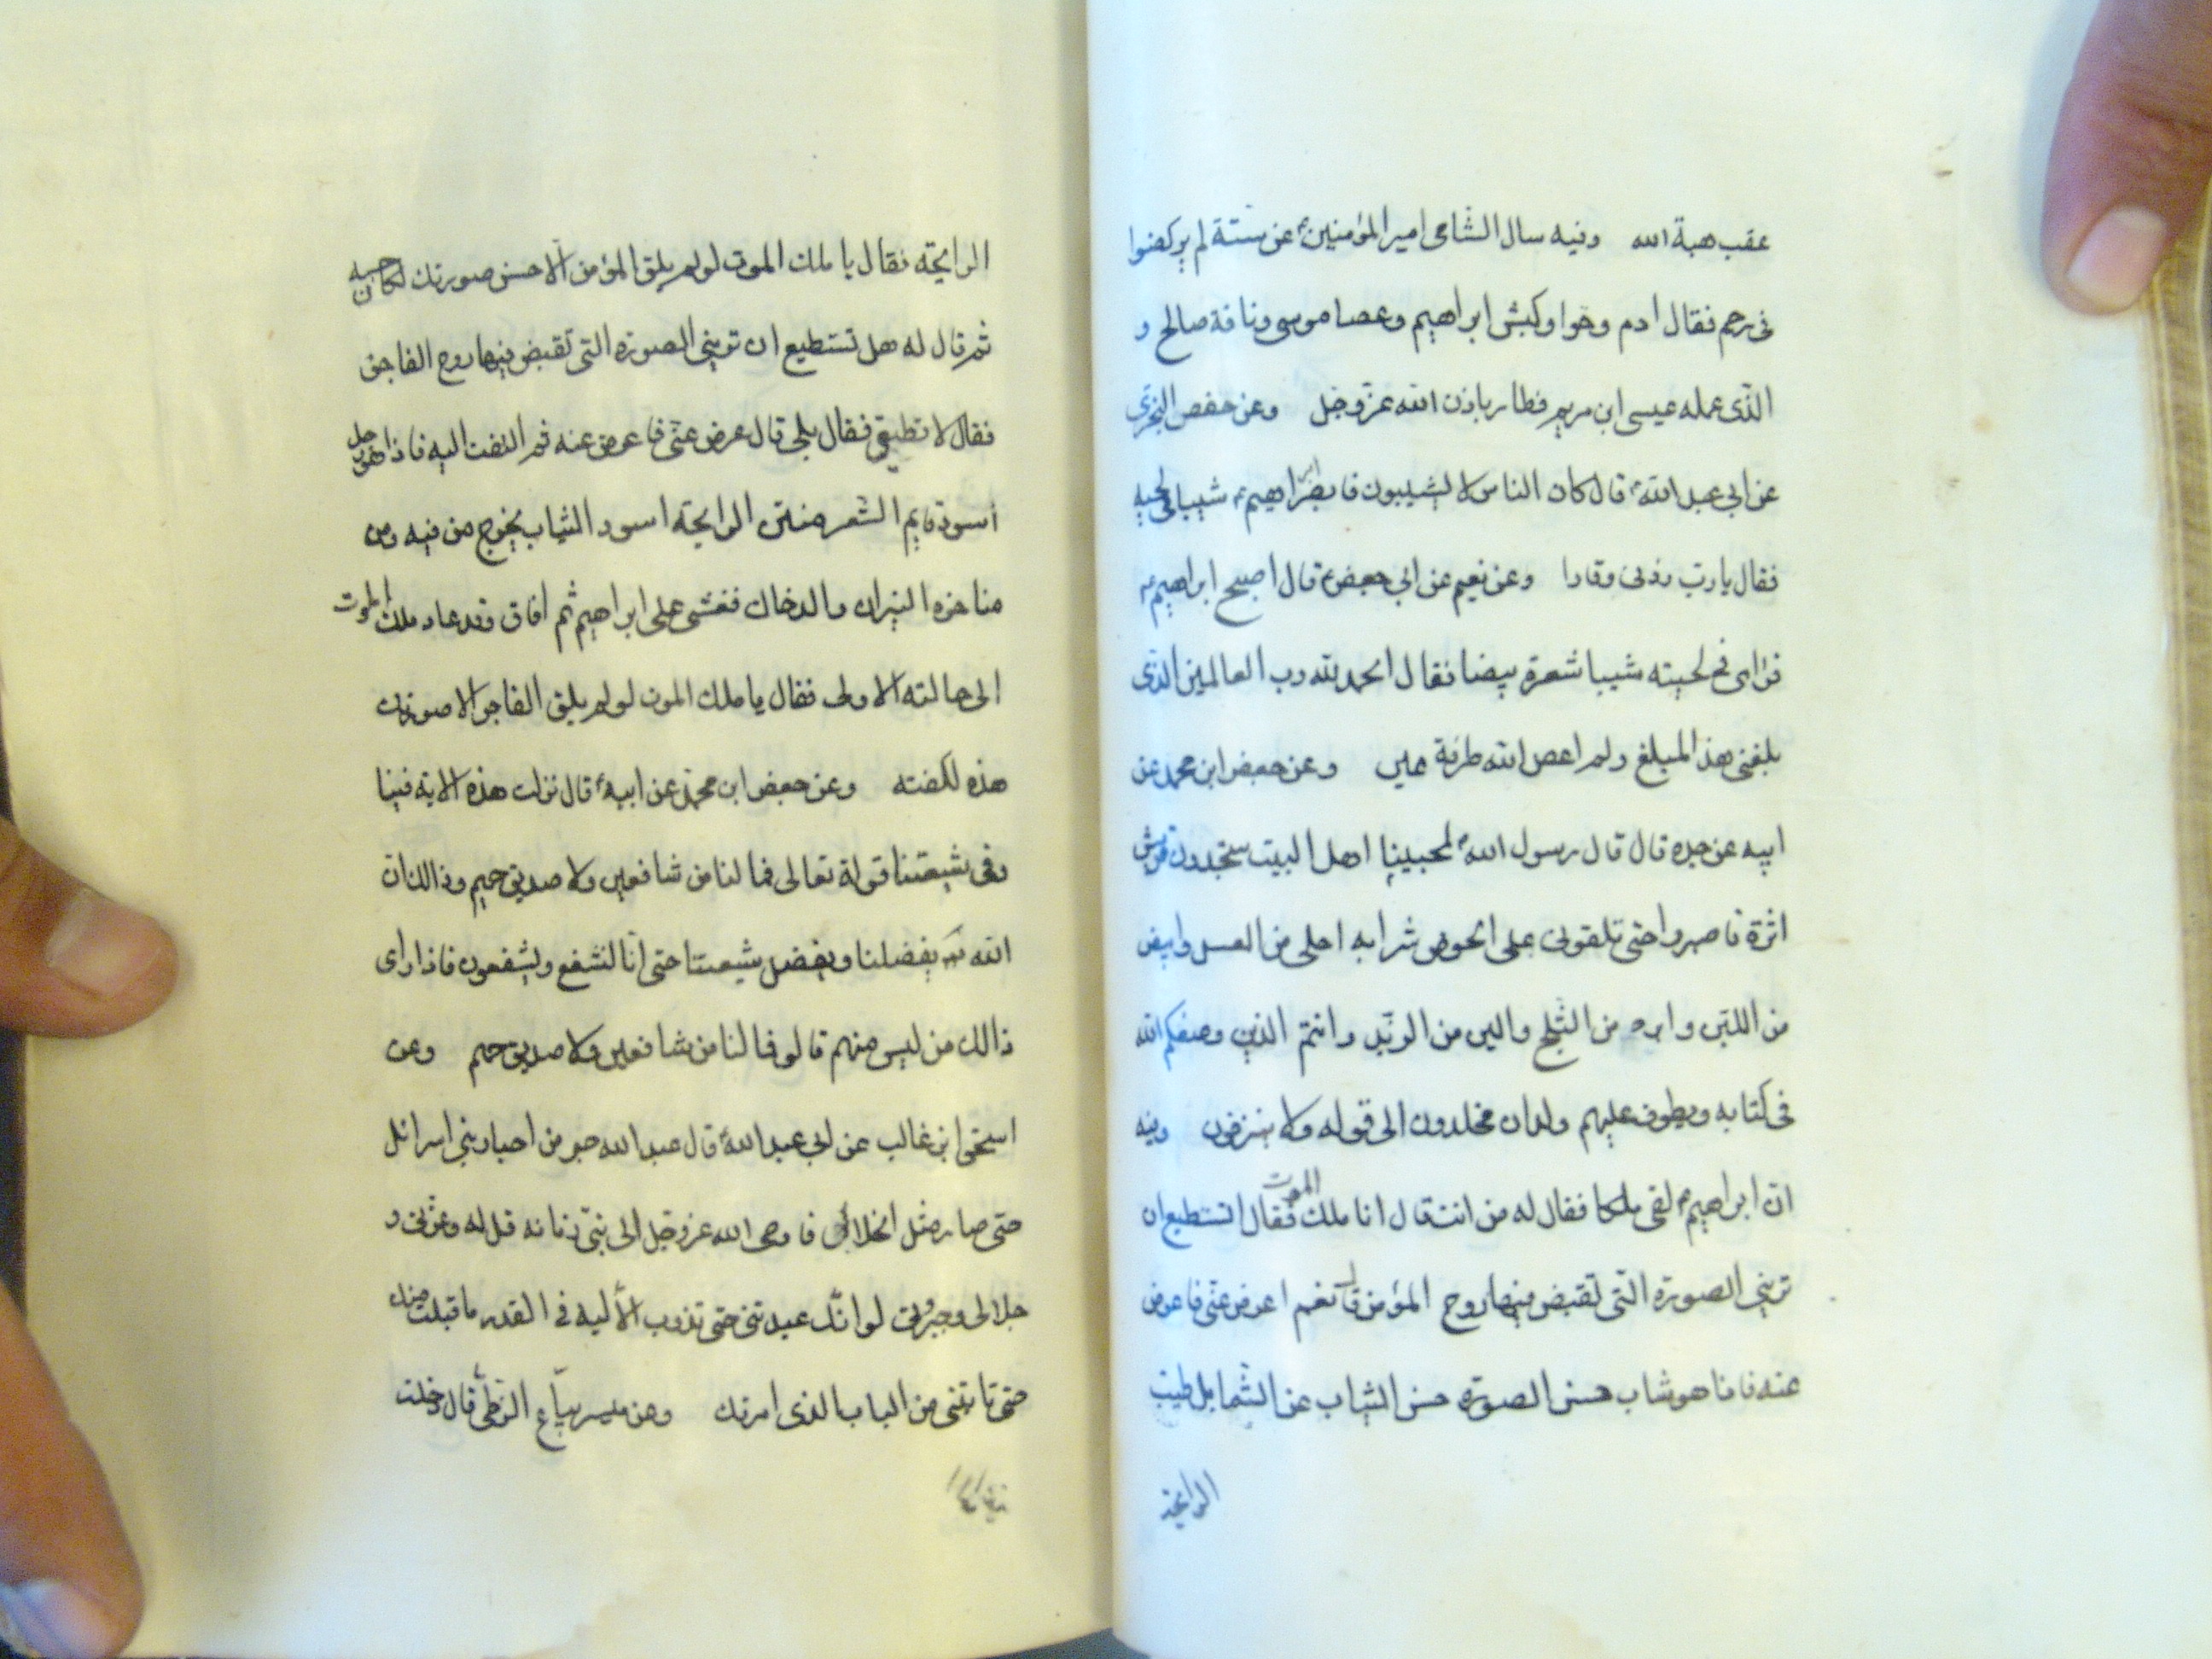 عقب هبة الله وفيه سال الشامى امير المؤمنين ع عن ستة لم يركضوا
فى رحم فقال ادم وحوا وكبش ابراهيم وعصا موسى وناقة صالح و
الذى عمله عيسى ابن مريم فطار باذن الله عز وجل وعن حفص البخترى
عن ابى عبد الله ع قال كان الناس لا يشيبون فابصر ابراهيم ع شيبا فى لحيته
فقال يا رب زدنى وقارا وعن نعيم عن ابى جعفر ع قال اصبح ابراهيم ع
فراى فى لحيته شيبا شعرة بيضا فقال الحمد لله رب العالمين الذى
بلغنى هذا المبلغ ولم اعص الله طرفة عين وعن جعفر ابن محمد عن
ابيه عن جده قال قال رسول الله لمحبينا اهل البيت ستجدون قريش
اثرة فاصبروا حتى تلقونى على الحوض شرابه احلى من العسل وابيض
من اللبن وابرد من الثلج والين من الزبد وانتم الذين وصفكم الله
فى كتابه ويطوف عليهم ولدان مخلدون الى قوله ولا ينزفون وفيه
ان ابراهيم ع لقى ملكا فقال له من انت قال انا ملك الموت فقال اتستطيع ان
ترينى الصورة التى تقبض فيها روح المؤمن قال نعم اعرض عنى فاعرض
عنه فاذا هو شاب حسن الصورة حسن الثياب عن الشمايل طيب
الرايحة
الرايحة فقال يا ملك الموت لو لم يلق المؤمن الا حسن صورتك لكان حسبه
ثم قال له هل تستطيع ان ترينى الصورة التى تقبض فيها روح الفاجر
فقال لا تطيق فقال بلى قال عرض عنى فاعرض عنه ثم التفت اليه فاذا هو رجل
اسود قايم الشعر منتن الرايحة اسود الثياب يخرج من فيه ومن
مناخره النيران والدخان فغشى على ابراهيم ثم افاق وقد عاد ملك الموت
الى حالته الاولى فقال يا ملك الموت لو لم يلق الفاجر الا صورتك
هذه لكفته وعن جعفر ابن محمد عن ابيه ع قال نزلت هذه الاية فينا
وفى شيعتنا قوله تعالى فما لنا من شافعين ولا صديق حميم وذالك ان
الله يفضلنا ويفضل شيعتنا حتى انا لنشفع ويشفعون فاذا راى
ذالك من ليس منهم قالو فما لنا من شافعين ولا صديق حميم وعن
اسحق ابن غالب عن ابى عبد الله ع قال عبد الله حبر من احبار بنى اسرائل
حتى صار مثل الخلال فاوحى الله عز وجل الى نبى زمانه قل له وعزتى و
جلالى وجبروتى لو انك عبدتنى حتى تذوب الالية فى القدر ما قبلت منك
حتى تاتينى من الباب الذى امرتك وعن ميسر بياع الزطى قال دخلت